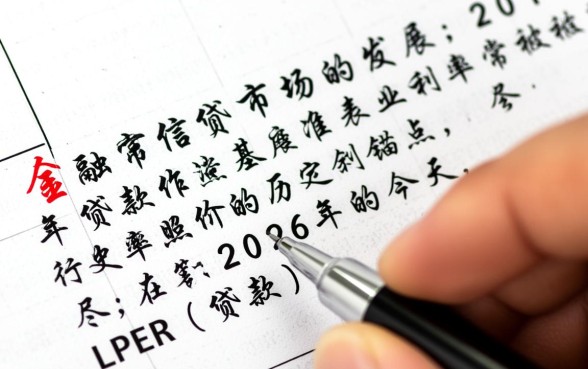 金融常信贷市场的发展；201
年贷款作为基展准表业利率常被被
行史率照价的历定利锚点，尽.
尽；在 2026年的今天，
LPER（贷款）